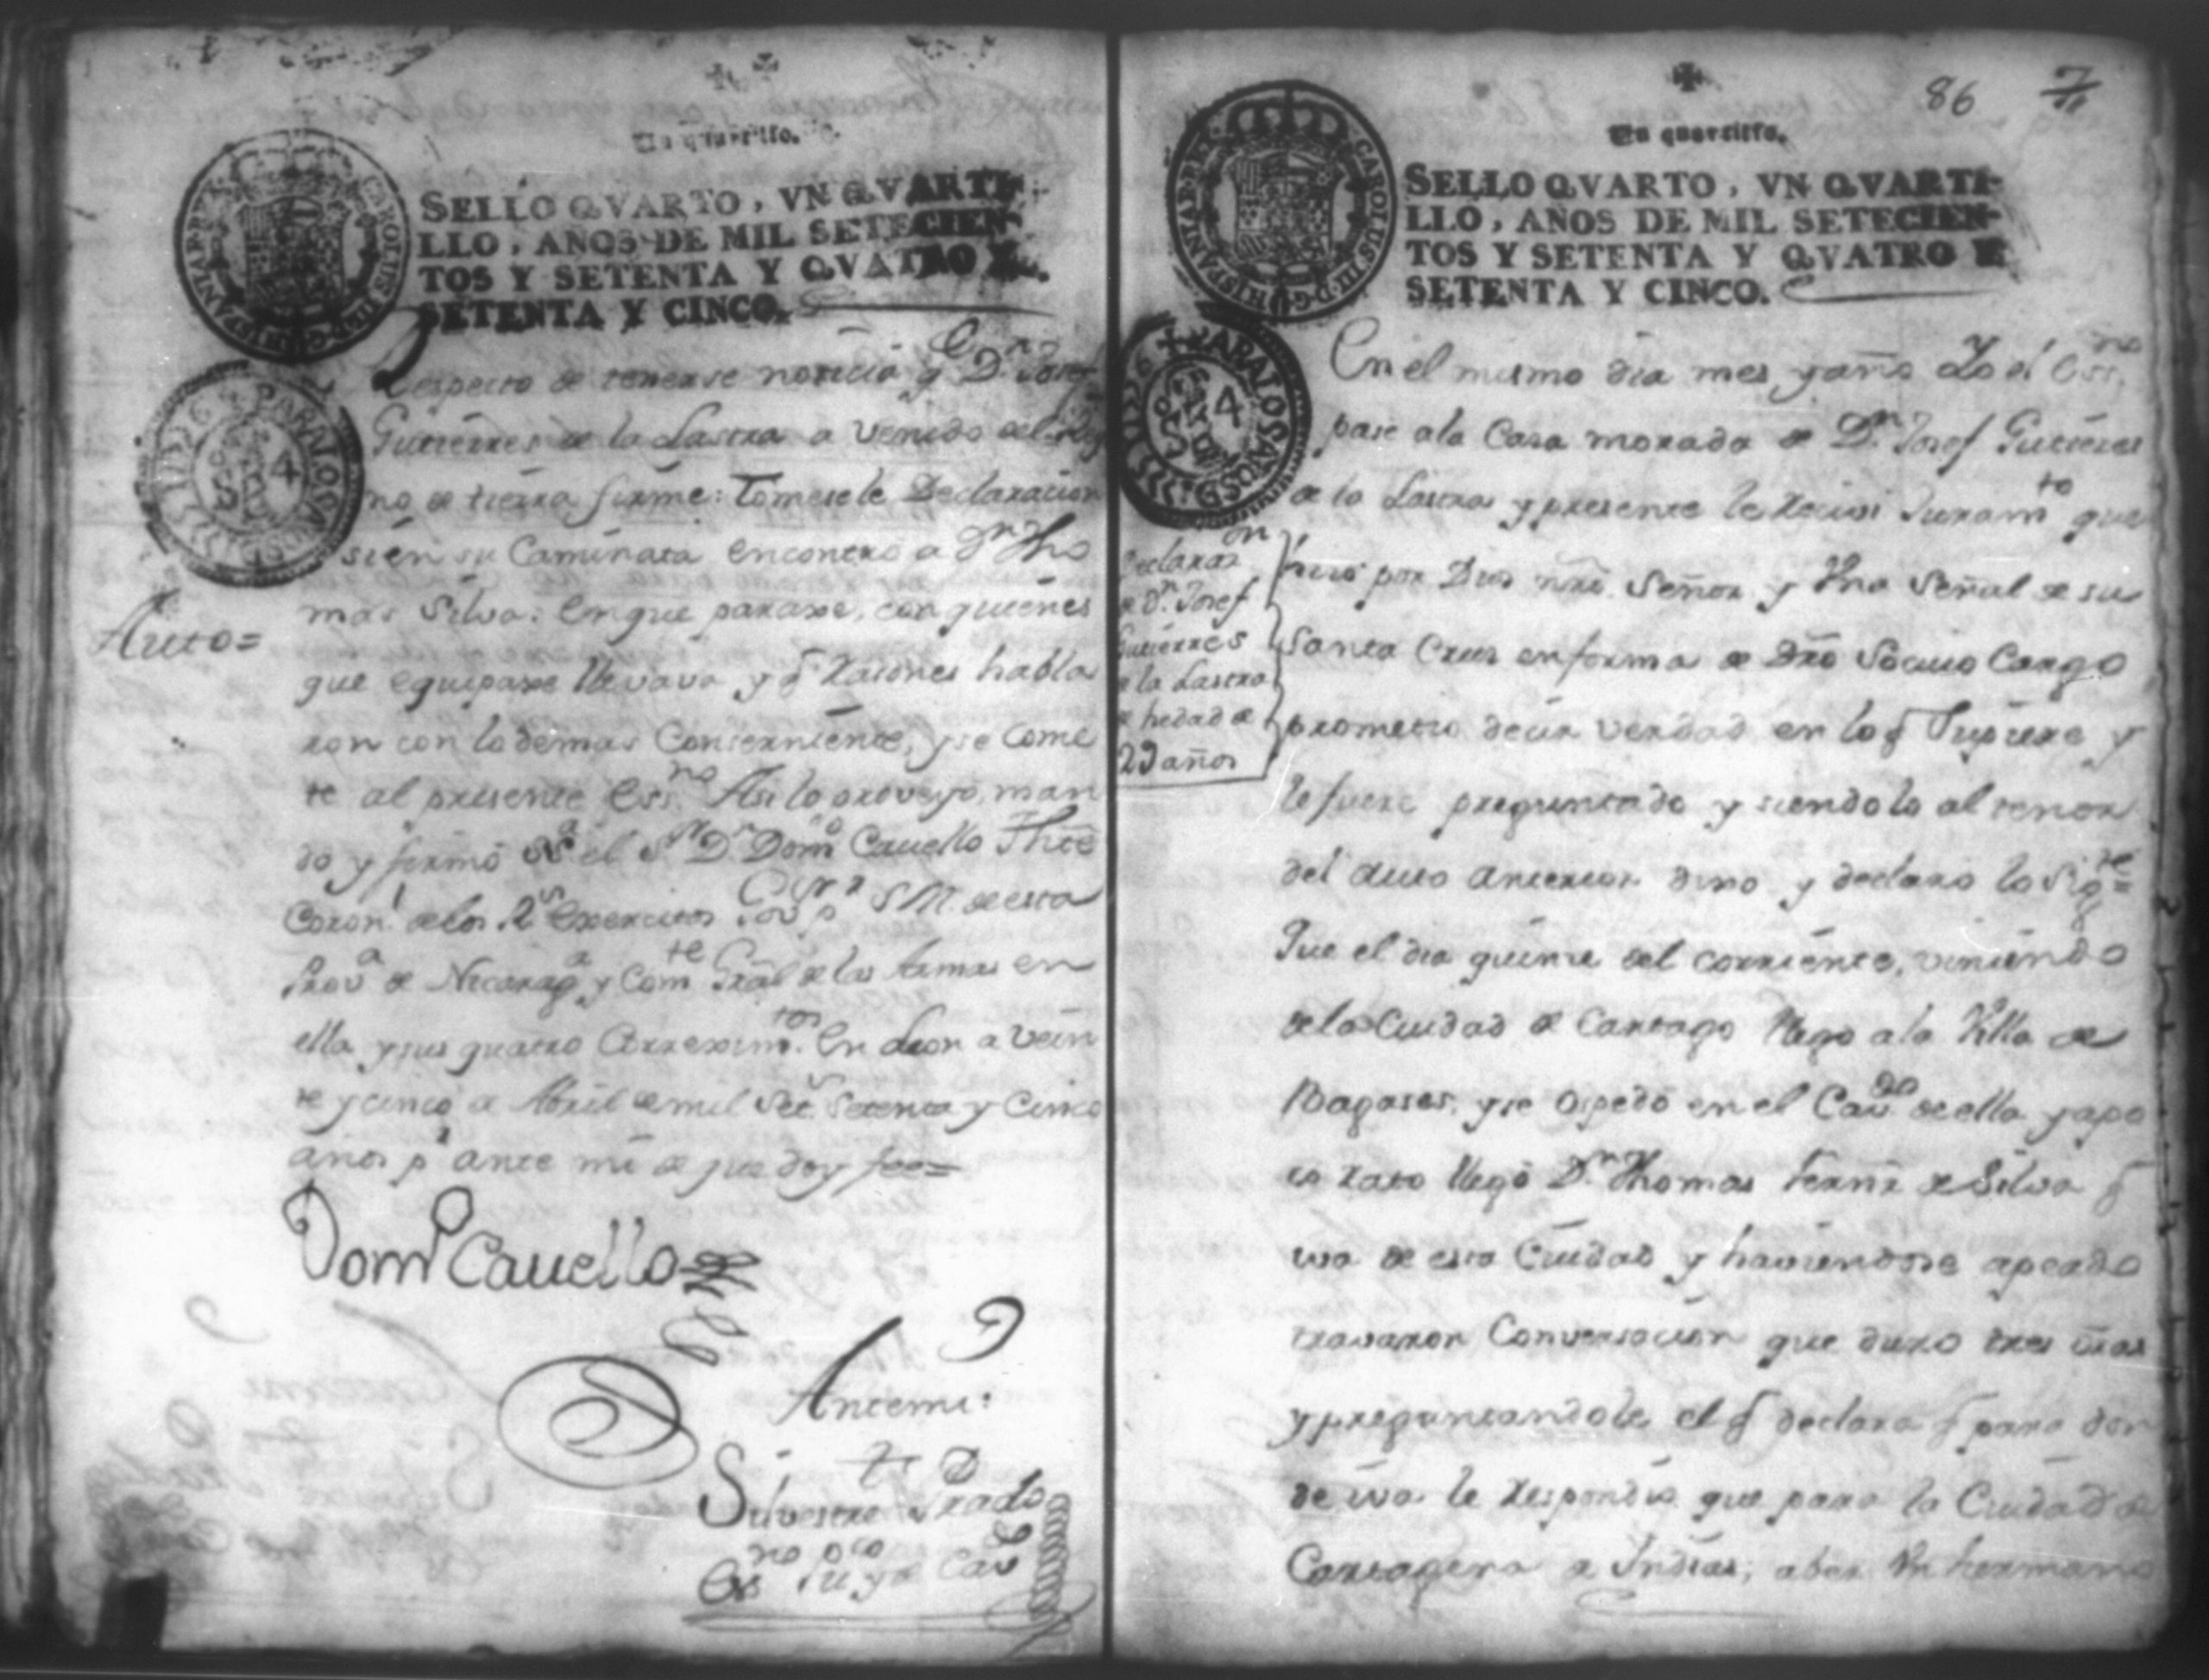 Un quartillo.
SELLO QVARTO, VN QVARTI-
LLO, AÑOS DE MIL SETECIEN-
TOS Y SETENTA Y QVATRO Y
SETENTA Y CINCO.
CAROLUS III D G HISPANIAR REX
PARA LOS AÑOS D 1776
Auto=
Respecto de tenerse noticia q D.n Josef
Gutierres de la Lastra a venido del Rey
no de tierra firme: tomesele Declaracion
si en su Caminata encontro a D.n Tho
mas Silva: en que paraxe, con quienes
que equipaxe llevava y q raiones habla
ron con lo demas Conserniente, y se come
te al presente Ess.no Asi lo proveyó, man
do y firmó el S.r D.n Dom.o Cavello Thte
Coron.l de los R.s Exercitos Gov.r p.r S M. de esta
Prov.a de Nicarag.a y Com.te Gral de las Armas en
ella y sus quatro Correxim.tos En Leon a vein
te y cinco de Abril de mil Set.s Setenta y Cinco
años p.r ante mi de que doy fee=
Dom.o Cavello
Antemi:
Silvestre Prado
Ess.no pu.co y de Cav.do
86
Un quartillo.
SELLO QVARTO, VN QVARTI-
LLO, AÑOS DE MIL SETECIEN-
TOS Y SETENTA Y QVATRO Y
SETENTA Y CINCO.
CAROLUS III D G HISPANIAR REX
PARA LOS AÑOS D 1776
Declaraz.on
de D.n Josef
Gutierres
de la Lastra
de hedad de
29 años
En el mismo dia mes y año Yo el Ess.no
pase a la Casa morada de D.n Josef Gutierres
de la Lastra y presente le recivi Juram.to que
hizo por Dios nro. Señor y Vna Señal de su
Santa Cruz en forma de Dro So cuio Cargo
prometio decir verdad en lo q Supiere y
le fuere preguntado y siendolo al tenor
del auto anterior dixo y declaro lo Sig.te=
Que el dia quinze del corriente, viniendo
de la Ciudad de Cartago llego a la Villa de
Bagases, y se ospedó en el Cav.do de ella y a po
co rato llegó D.n Thomas Fernz de Silva q
iva de esta Ciudad y haviendose apeado
travaron Conversacion que duro tres oras
y preguntandole el q declara q para don
de iva le respondio que para la Ciudad de
Cartagena de Indias, a ber Vn hermano